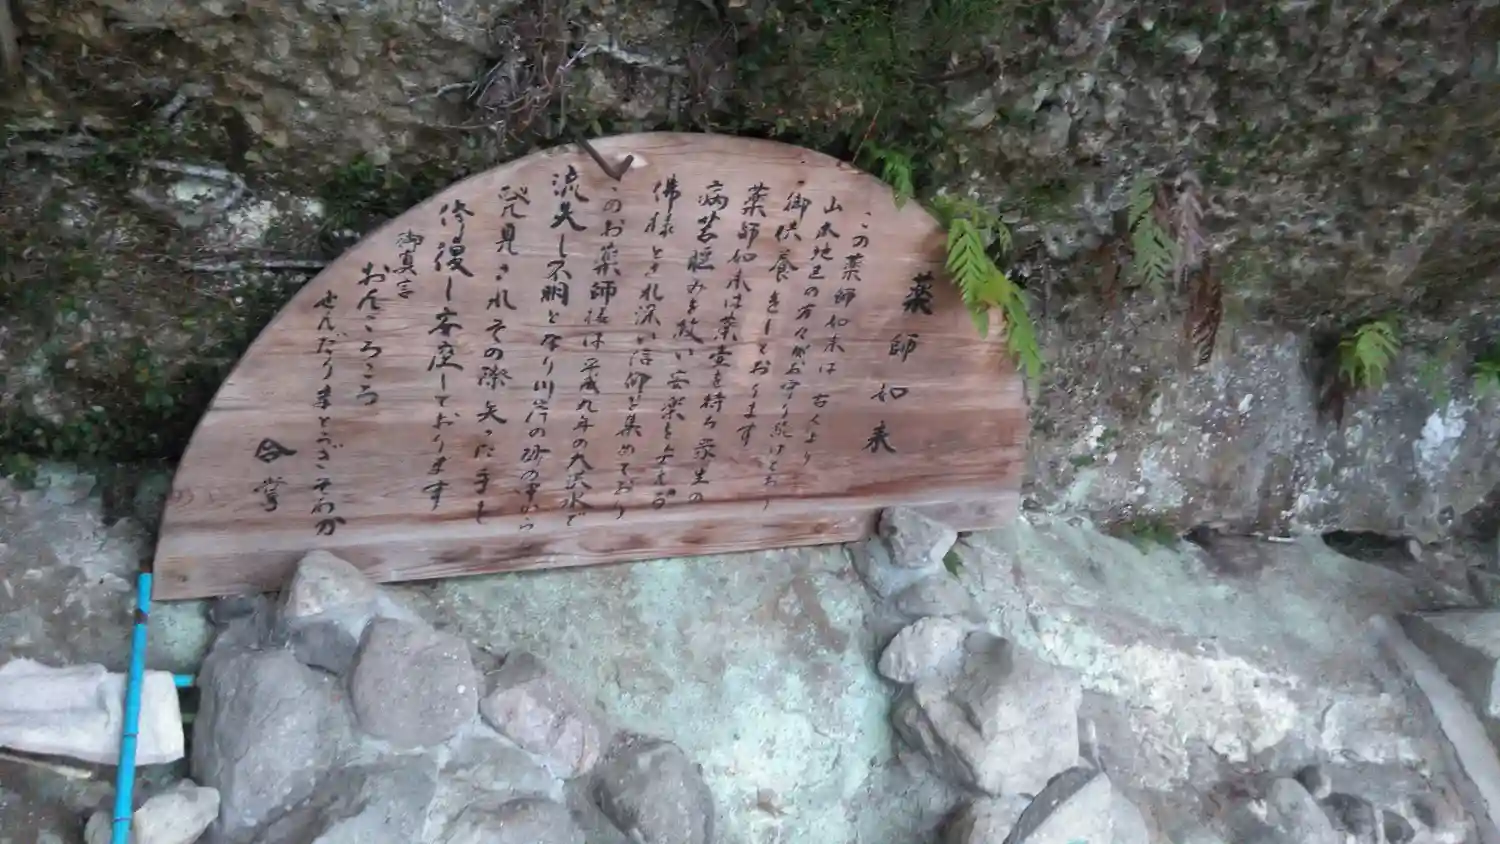 薬師如来
この薬師如来は古くより
山本地区の方々がお守り続けており
御供養をしております
薬師如来は薬壺を持ち衆生の
病苦悩みを救い安楽を与える
佛様とされ深い信仰を集めており
このお薬師様は平成九年の大洪水で
流失し不明となり川岸の砂の中から
発見されその際失った手も
修復し安座しております
御真言
おんころころ
せんだりまとうぎそわか
合掌